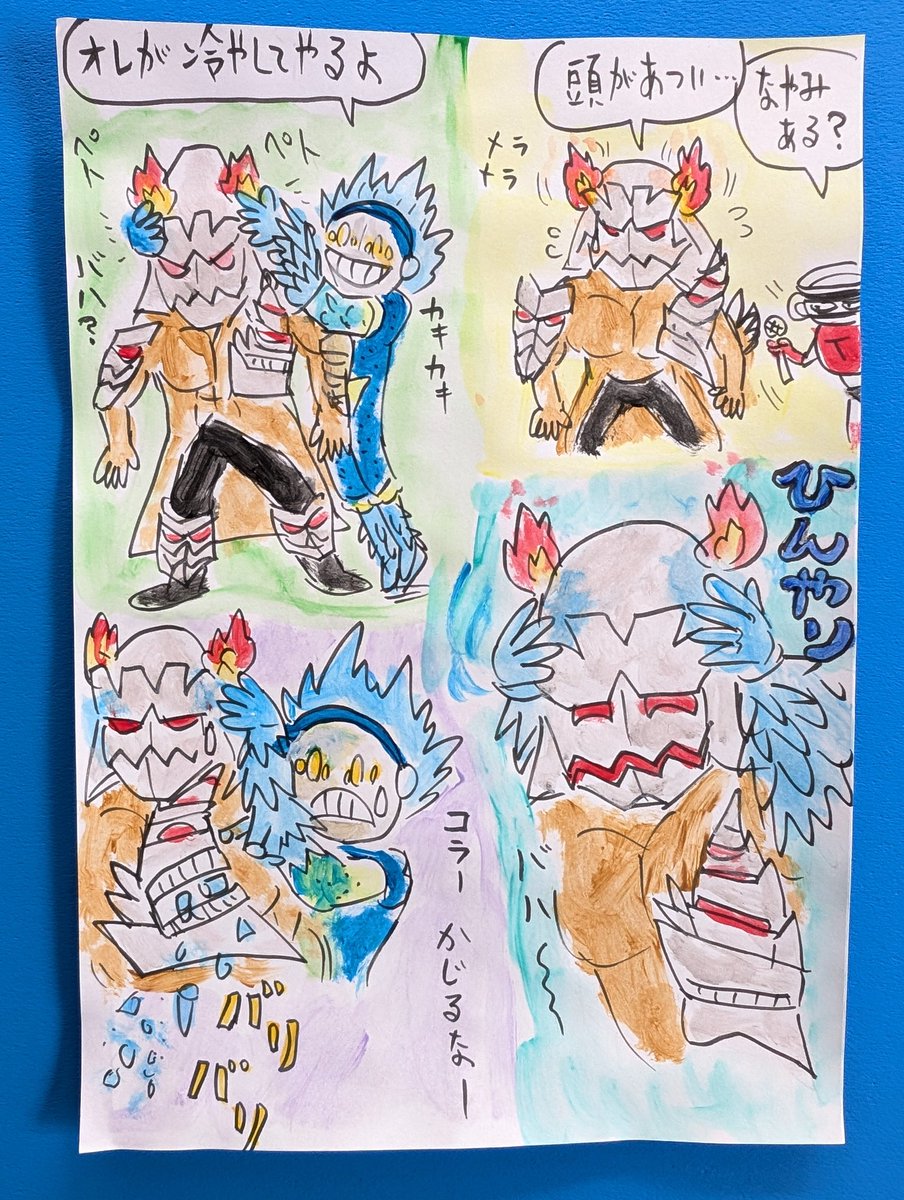 なやみ
ある?
頭があつい…
メラ
メラ
T
オレが冷やしてやるよ
ペト
ペト
カキカキ
バハ?
ひんやり
バハ〜
コラー かじるなー
バリ
バリ